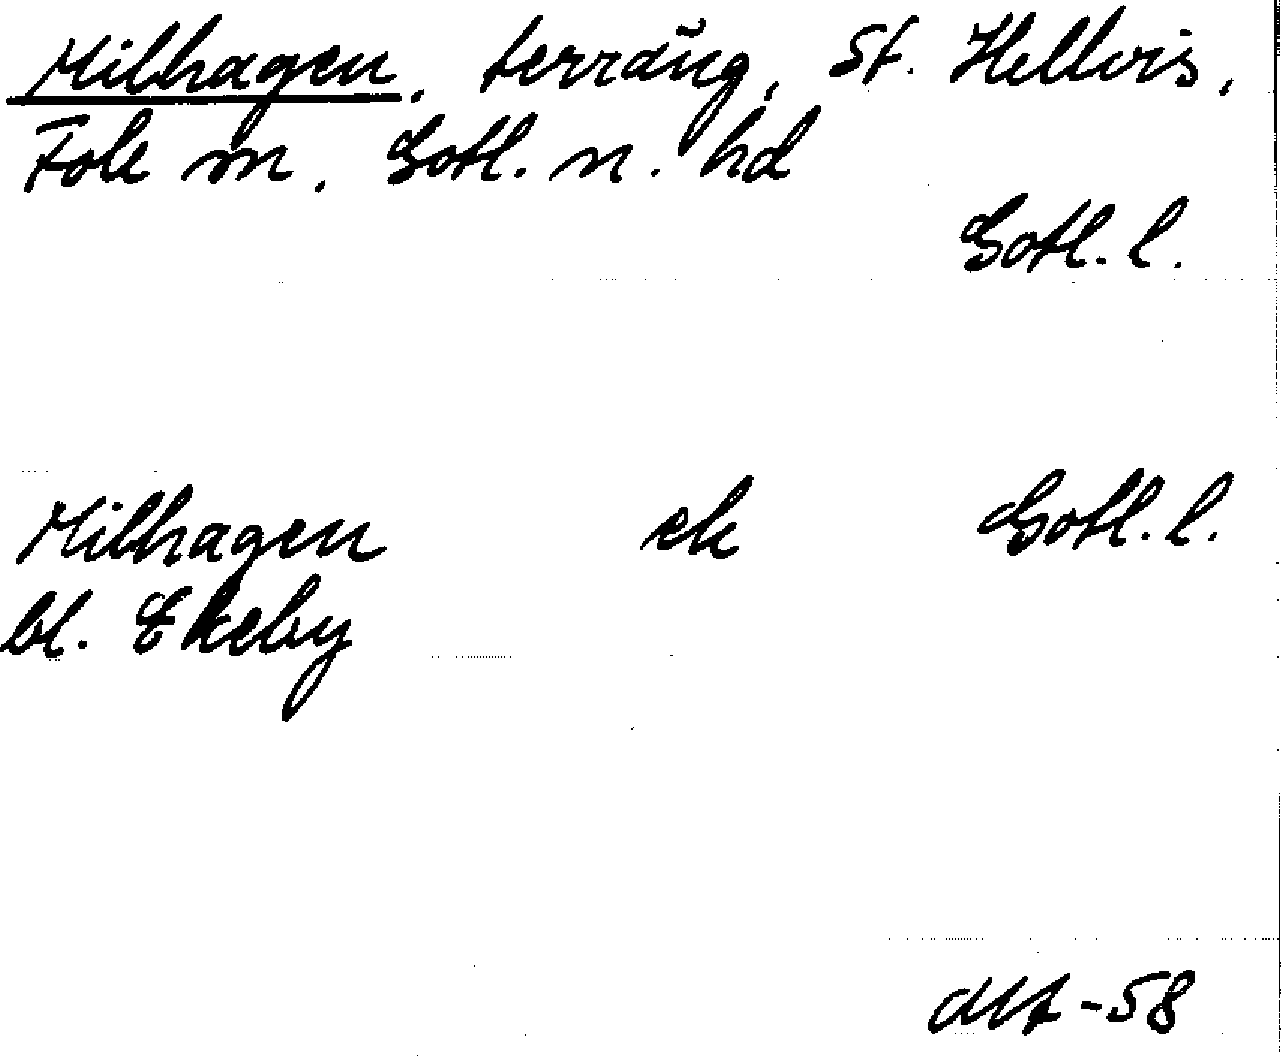 Milhagen, terräng, St. Hellvis,
Fole sn. Gotl. n. hd
Gotl. l.
Milhagen ek Gotl. l.
bl. Ekeby
-58